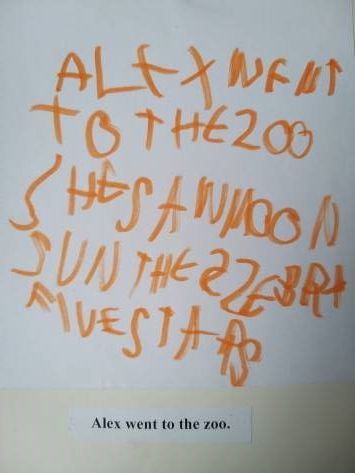 ALEX WENT
TO THE ZOO
SHE SAW MOON
SUN THE 2 ZEBRA
FIVE STARS
Alex went to the zoo.